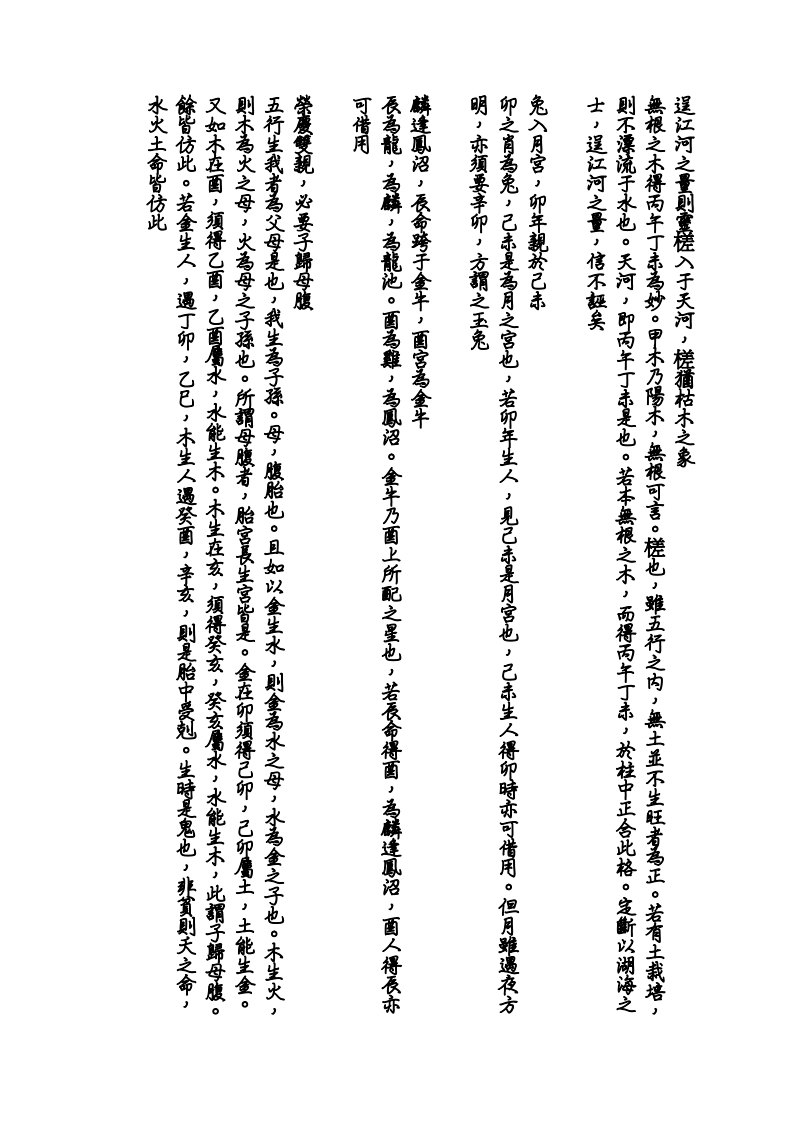 逞江河之量則靈槎入于天河，槎猶枯木之象
無根之木得丙午丁未為妙。甲木乃陽木，無根可言。槎也，雖五行之內，無土並不生旺者為正。若有土栽培，
則不漂流于水也。天河，即丙午丁未是也。若本無根之木，而得丙午丁未，於柱中正合此格。定斷以湖海之
士，逞江河之量，信不誣矣
兔入月宮，卯年親於己未
卯之肖為兔，己未是為月之宮也，若卯年生人，見己未是月宮也，己未生人得卯時亦可借用。但月雖遇夜方
明，亦須要辛卯，方謂之玉兔
麟逢鳳沼，辰命跨于金牛，酉宮為金牛
辰為龍，為麟，為龍池。酉為雞，為鳳沼。金牛乃酉上所配之星也，若辰命得酉，為麟逢鳳沼，酉人得辰亦
可借用
榮慶雙親，必要子歸母腹
五行生我者為父母是也，我生為子孫。母，腹胎也。且如以金生水，則金為水之母，水為金之子也。木生火，
則木為火之母，火為母之子孫也。所謂母腹者，胎宮長生宮皆是。金在卯須得己卯，己卯屬土，土能生金。
又如木在酉，須得乙酉，乙酉屬水，水能生木。木生在亥，須得癸亥，癸亥屬水，水能生木，此謂子歸母腹。
餘皆仿此。若金生人，遇丁卯，乙巳，木生人遇癸酉，辛亥，則是胎中受剋。生時是鬼也，非貧則夭之命，
水火土命皆仿此